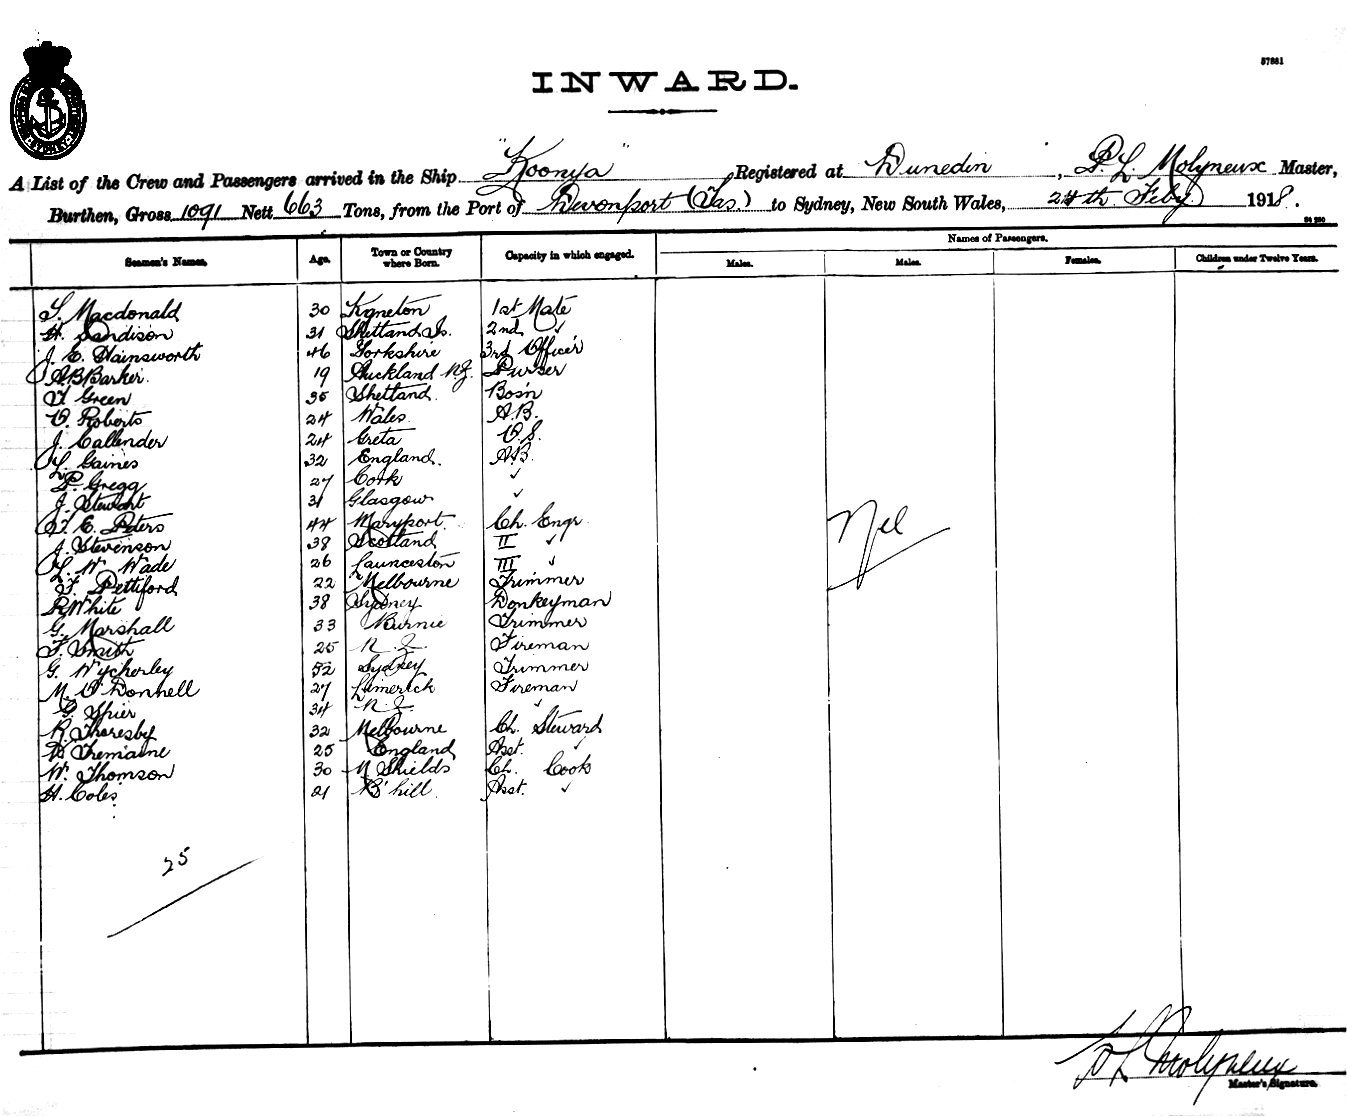 57881
INWARD.
A List of the Crew and Passengers arrived in the Ship "Koonya" Registered at Dunedin, P. L. Molyneux Master,
Burthen, Gross 1091 Nett 663 Tons, from the Port of Devonport (Tas.) to Sydney, New South Wales, 24th Feby 1918.
Names of Passengers.
Seamen's Names. Age. Town or Country where Born. Capacity in which engaged. Males. Males. Females. Children under Twelve Years.
Macdonald 30 Kyneton 1st Mate
H. Sandison 31 Shetland Is. 2nd ✓
J. E. Hainsworth 46 Yorkshire 3rd Officer
A B Barker. 19 Auckland N.Z. Purser
Green 35 Shetland. Bos'n
O. Roberts 24 Wales. A.B.
J. Callender 24 Greta O.S.
L. Gaines 32 England. A.B.
P. Gregg 27 Cork ✓
J. Stewart 31 Glasgow ✓
E. Peters 44 Maryport. Ch. Engr.
J. Stevenson 38 Scotland II ✓
L. W. Wade 26 Launceston III ✓
F. Pettiford 22 Melbourne Trimmer
R White 38 Sydney Donkeyman
G. Marshall 33 Burnie Trimmer
F. Smith 25 N. Z. Fireman
G. Wycherley 52 Sydney Trimmer
M. O'Donnell 27 Limerick Fireman
G. Spier 34 N. Z. ✓
R. Thoresby 32 Melbourne Ch. Steward
Tremaine 25 England Asst. ✓
W. Thomson 30 N Shields Ch. Cook
H. Coles 21 B'hill. Asst. ✓
Nil
25
P L Molyneux
Master's Signature.